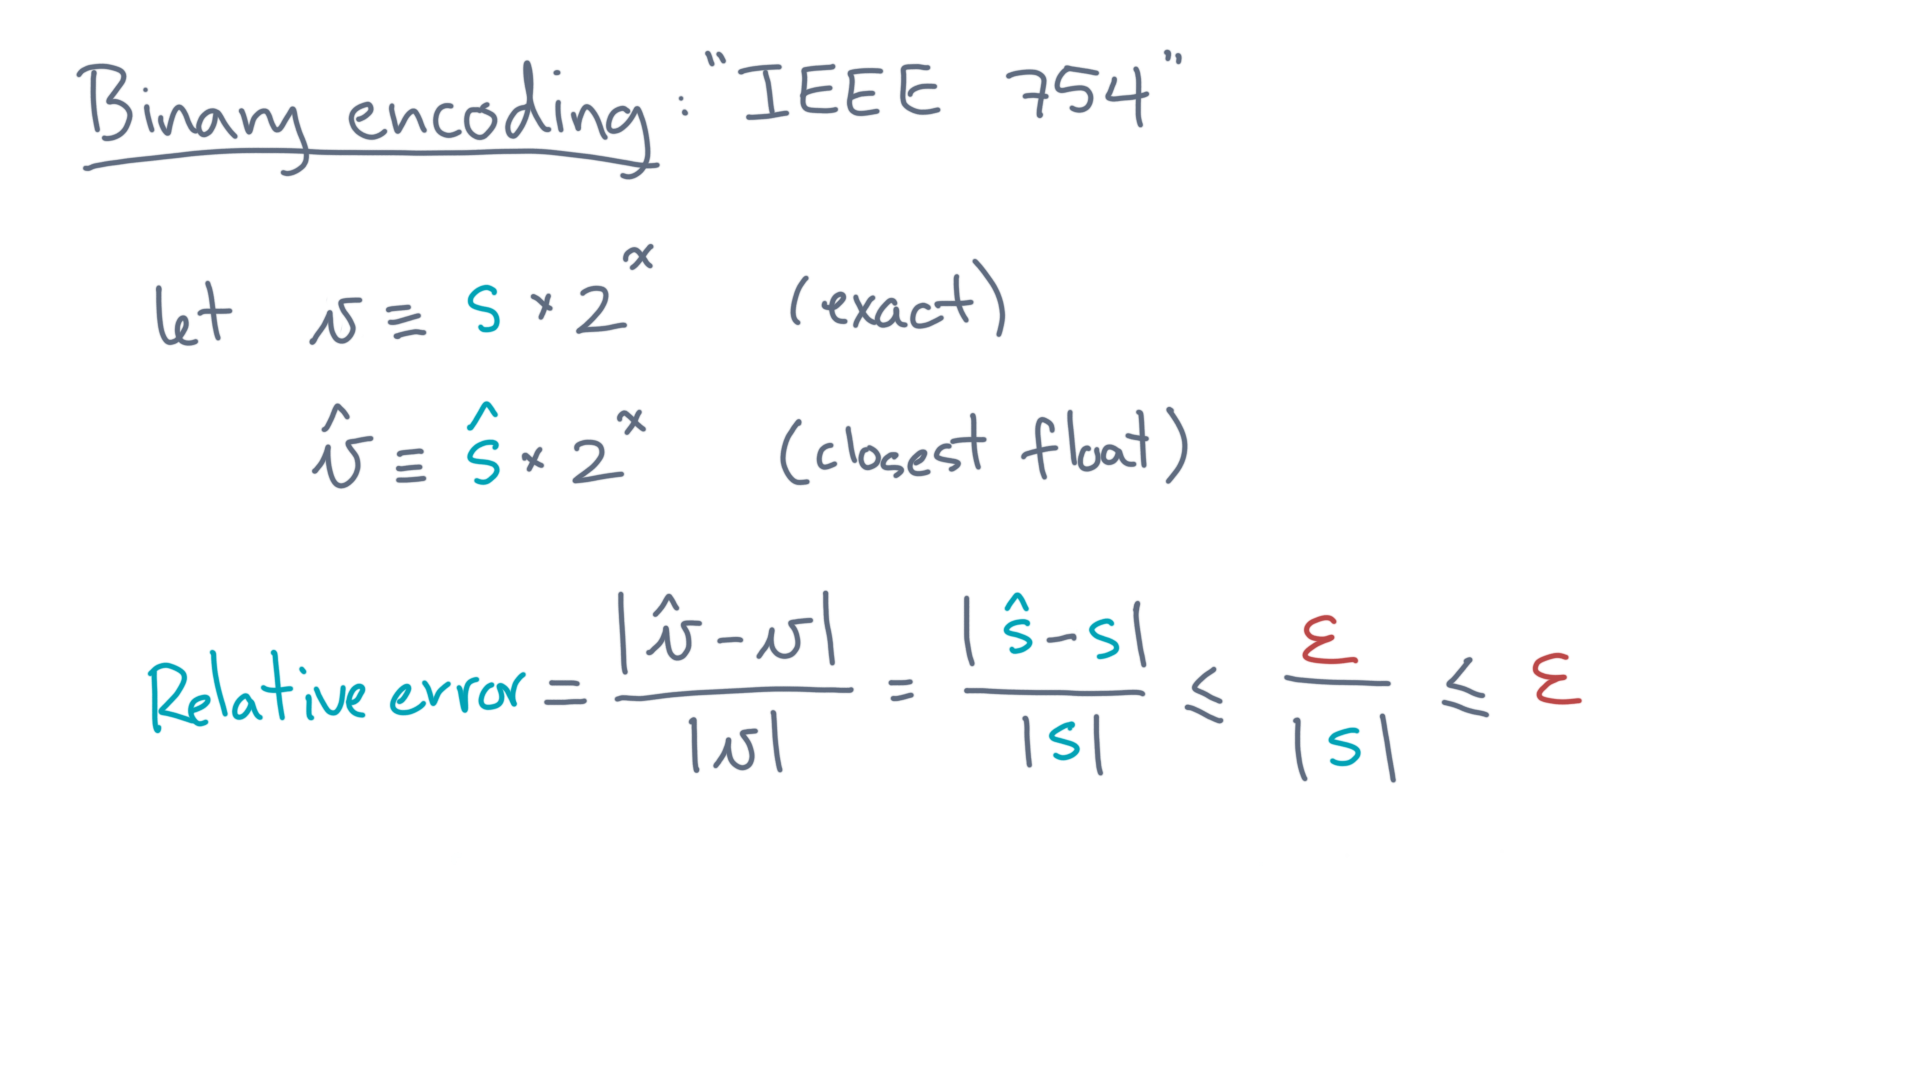 Binary encoding: "IEEE 754"
let v ≡ s × 2^x (exact)
v̂ ≡ ŝ × 2^x (closest float)
Relative error = |v̂ - v| / |v| = |ŝ - s| / |s| ≤ ε / |s| ≤ ε